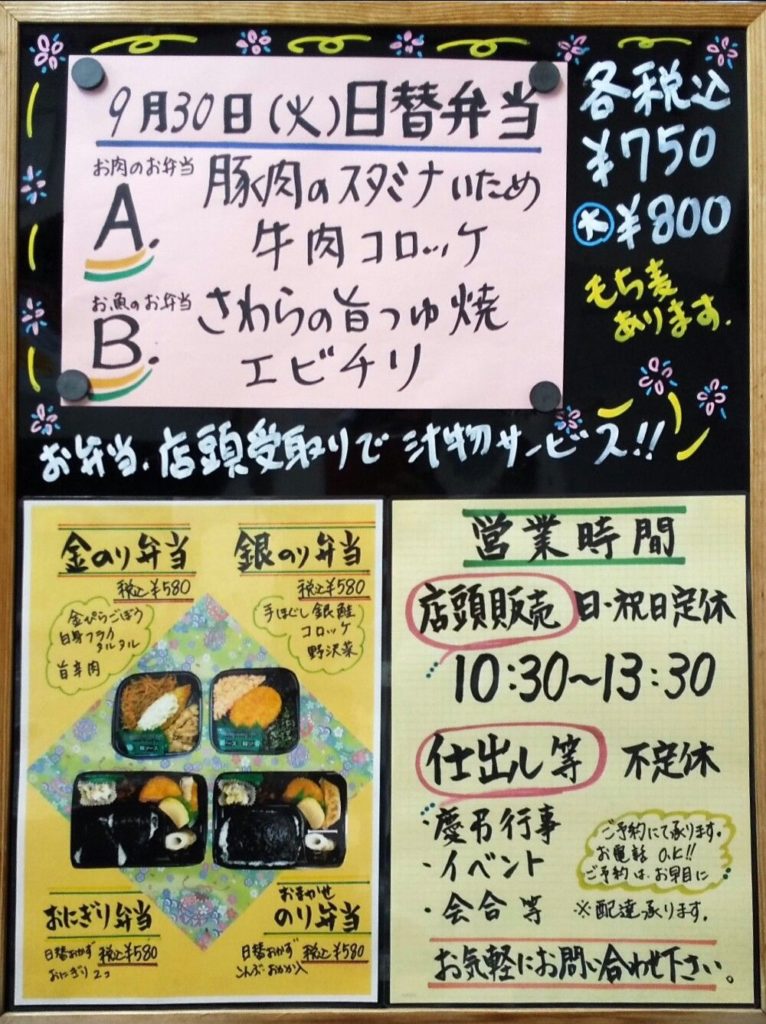 9月30日(火)日替弁当
お肉のお弁当
A.
豚肉のスタミナいため
牛肉コロッケ
お魚のお弁当
B.
さわらの旨つゆ焼
エビチリ
各税込
¥750
大¥800
もち麦
あります.
お弁当.店頭受取りで汁物サービス!!
金のり弁当
税込¥580
金ぴらごぼう
白身フライ
タルタル
旨辛肉
銀のり弁当
税込¥580
手ほぐし銀鮭
コロッケ
野沢菜
おにぎり弁当
日替おかず 税込¥580
おにぎり2コ
おまかせ
のり弁当
日替おかず 税込¥580
こんぶ・おかか入
営業時間
店頭販売 日・祝日定休
10:30～13:30
仕出し等 不定休
・慶弔行事
・イベント
・会合等
ご予約にて承ります。
お電話 O.K!!
ご予約は、お早目に
※配達承ります。
お気軽にお問い合わせ下さい。